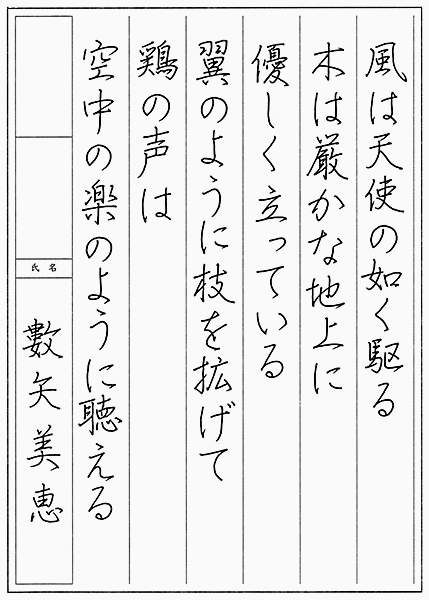 風は天使の如く駆る
木は厳かな地上に
優しく立っている
翼のように枝を拡げて
鶏の声は
空中の楽のように聴える
氏名
數矢美恵